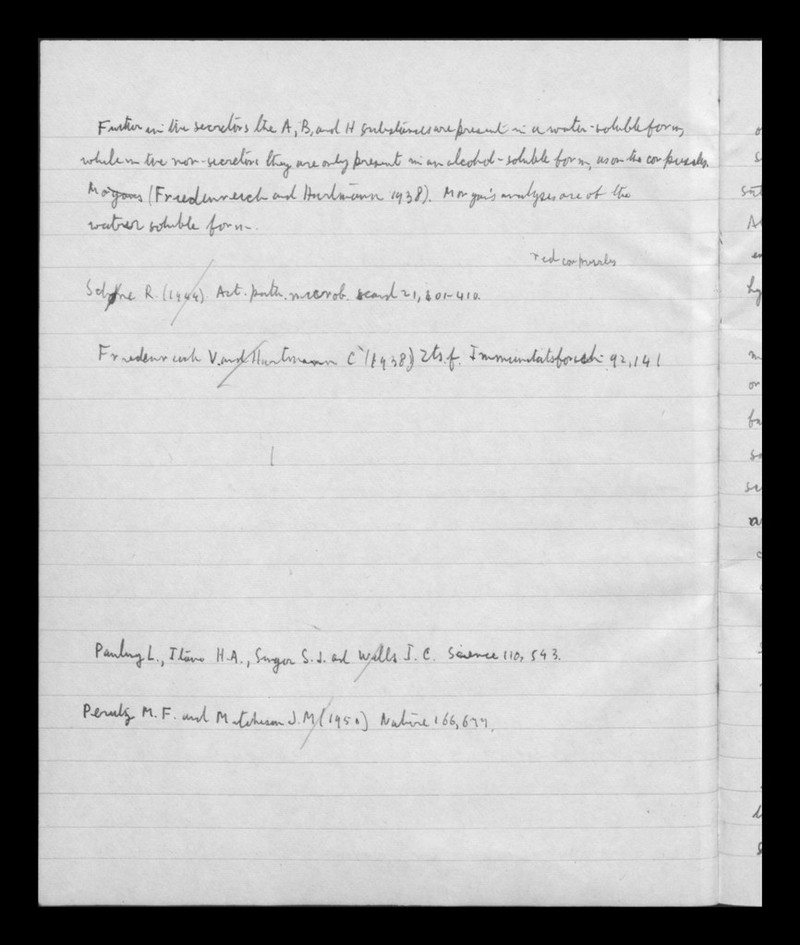 Further in the secretors the A, B, and H substances are present in a water-soluble form,
while in the non-secretors they are only present in an alcohol-soluble form, as on the corpuscles.
(Friedenreich and Hartmann 1938). Morgan's analyses are of the
water soluble form.
red corpuscles
R. (1944). Act. path. microb. scand 21, 801-410.
Friedenreich V. and Hartmann C (1938) Zts. f. Immunitätsforsch 92, 141
Pauling L., Itano H.A., Singer S.J. and Wells I.C. Science 110, 543.
Perutz M.F. and Mitchison J.M (1950) Nature 166, 677.
on
su